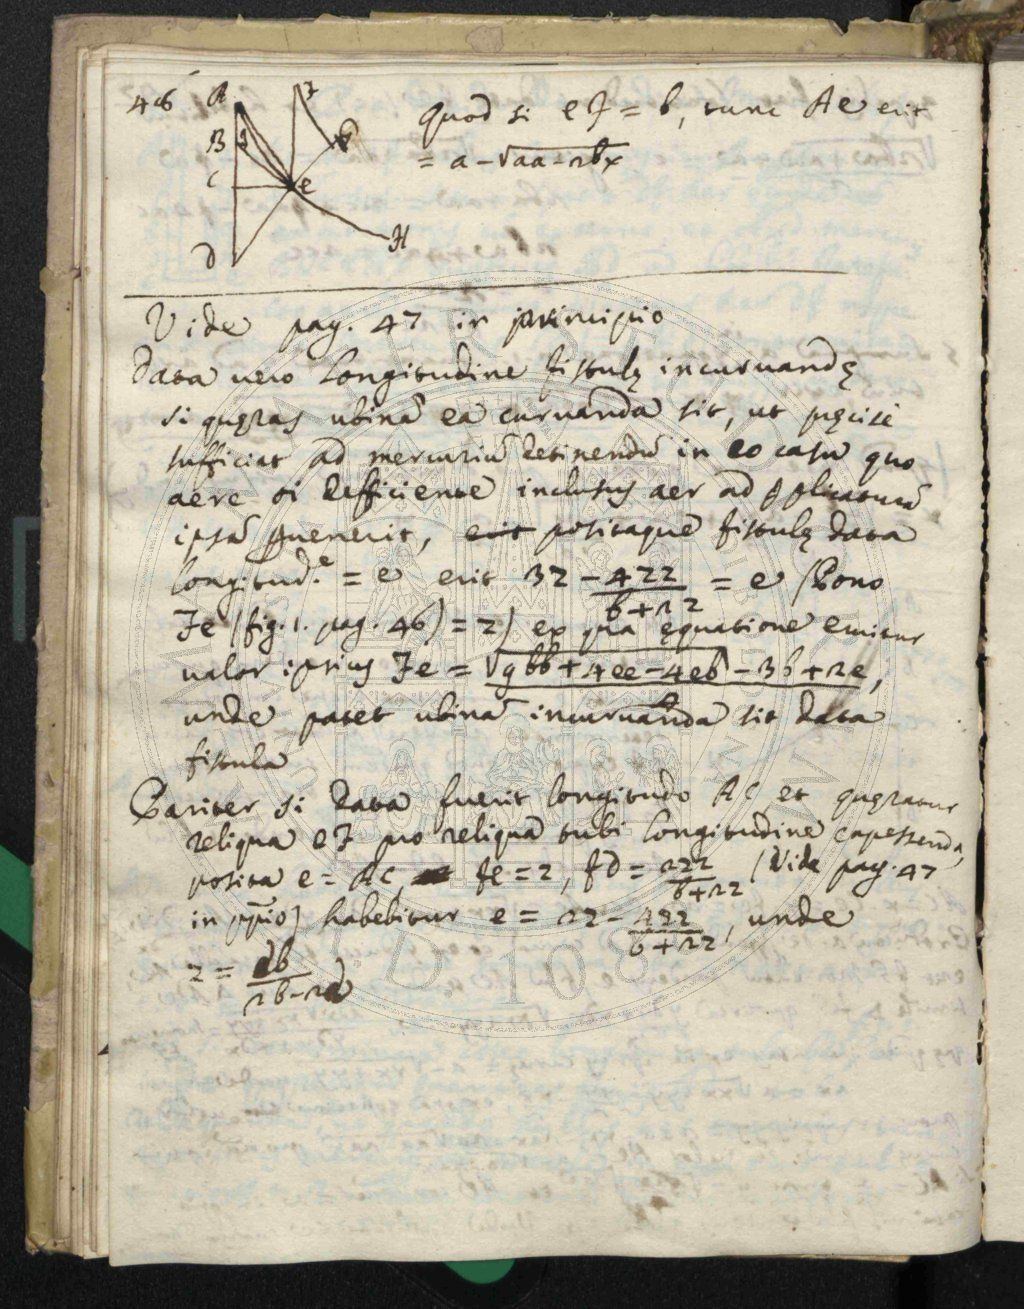 46
A
B
C
D
e
F
H
Quod si eF = b, tunc Ae erit
= a - √aa - 2bx
Vide pag. 47 in principio
Data vero longitudine fistulę incurvandę
si quęras ubinā ea curvanda sit, ut pręcise
sufficiat ad mercuriū detinendū in eo casu quo
aere ei defficiente inclusus aer ad
ipsā
erit positaque fistulę data
longitud.e = e erit 3z - 4zz/b+2z = e (Pono
Fe (fig. 1. pag. 46) = z) ex qua equatione emitur
valor ipsius Fe = √9bb + 4ee - 4eb - 3b + 2e,
unde patet ubinā incurvanda sit data
fistula
Pariter si data fuerit longitudo AC, et quęratur
reliqua eF pro reliquā tubi longitudine capessenda,
posita e = AC, fe = z, fd = 2zz/b+2z (Vide pag. 47
in ppio) habebitur e = 2z - 4zz/b+2z, unde
z = eb/2b-2e